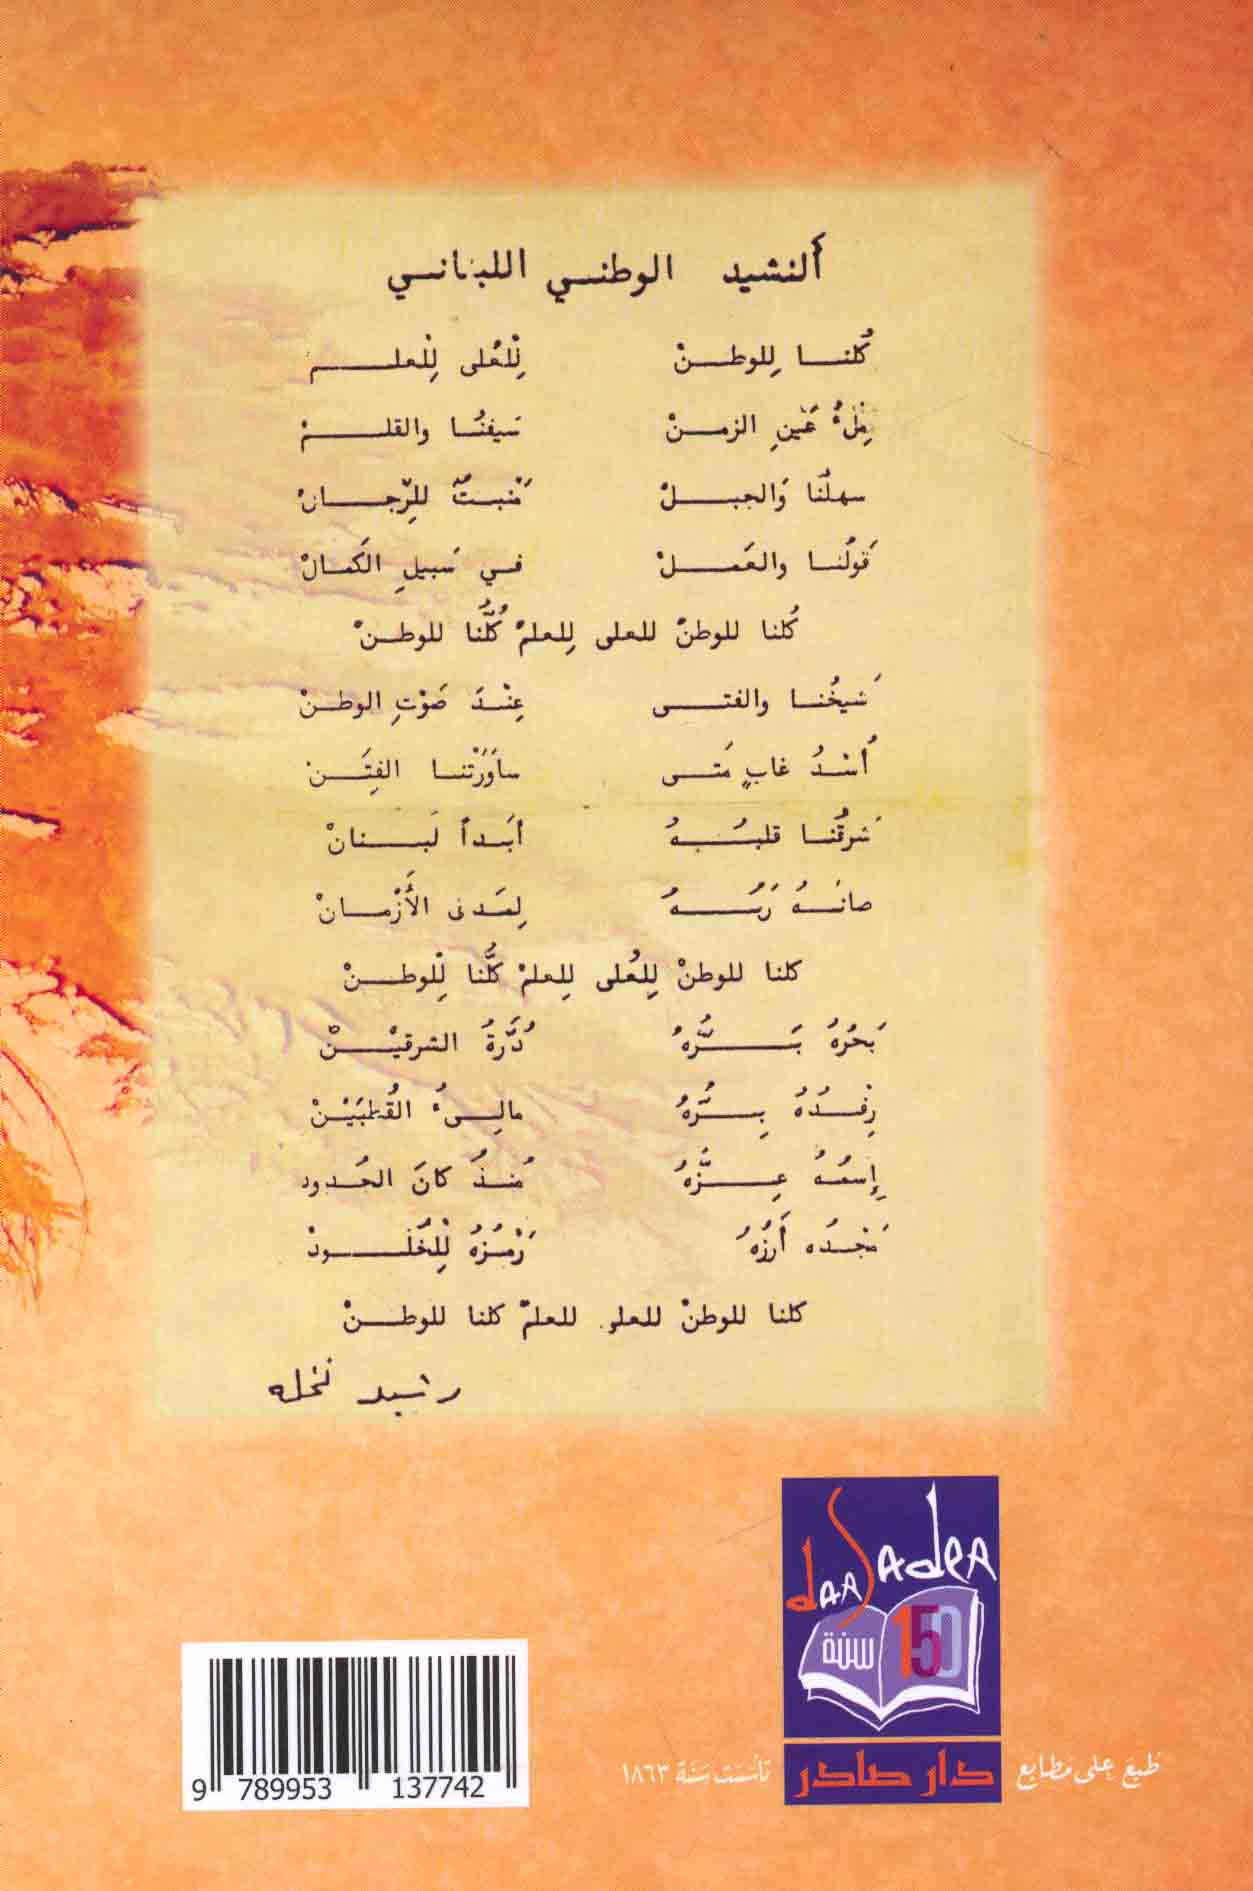 ألنشيد الوطني اللبناني
كُلنا لِلوطنْ لِلْعُلى لِلْعلم
مِلْءُ عَينِ الزمنْ سَيفنُا والقلمْ
سهلُنا وَالجبلْ مَنبتٌ للرِّجالْ
قَولُنا والعَملْ في سَبيلِ الكَمالْ
كُلنا للوطنْ للعلى لِلعلمْ كُلُّنا للوطنْ
شَيخُنا والفتى عِنْدَ صَوْتِ الوطنْ
أُسْدُ غابٍ مَتى ساوَرَتْنا الفِتَنْ
شَرقُنا قلبُهُ أبَداً لَبنانْ
صانَهُ رَبُهُ لِمَدى الأَزْمانْ
كلنا للوطنْ لِلعُلى لِلعلمْ كُلُّنا لِلْوطنْ
بَحرُهُ بَرُّهُ دُرَّةُ الشرقيْنْ
رِفْدُهُ بِرُّهُ مالىءُ القُطبَيْنْ
إِسمُهُ عِزُّهُ مُنذُ كانَ الجُدود
مَجْدُه أَرزُهُ رَمْزُهُ لِلْخُلُودْ
كلنا للوطنْ للعلى للعلمْ كلنا للوطنْ
رشيد نخله
daar Sader
150 سنة
طُبعَ على مَطابع دار صادر تأسّسَت سَنَة ١٨٦٣
9 789953 137742